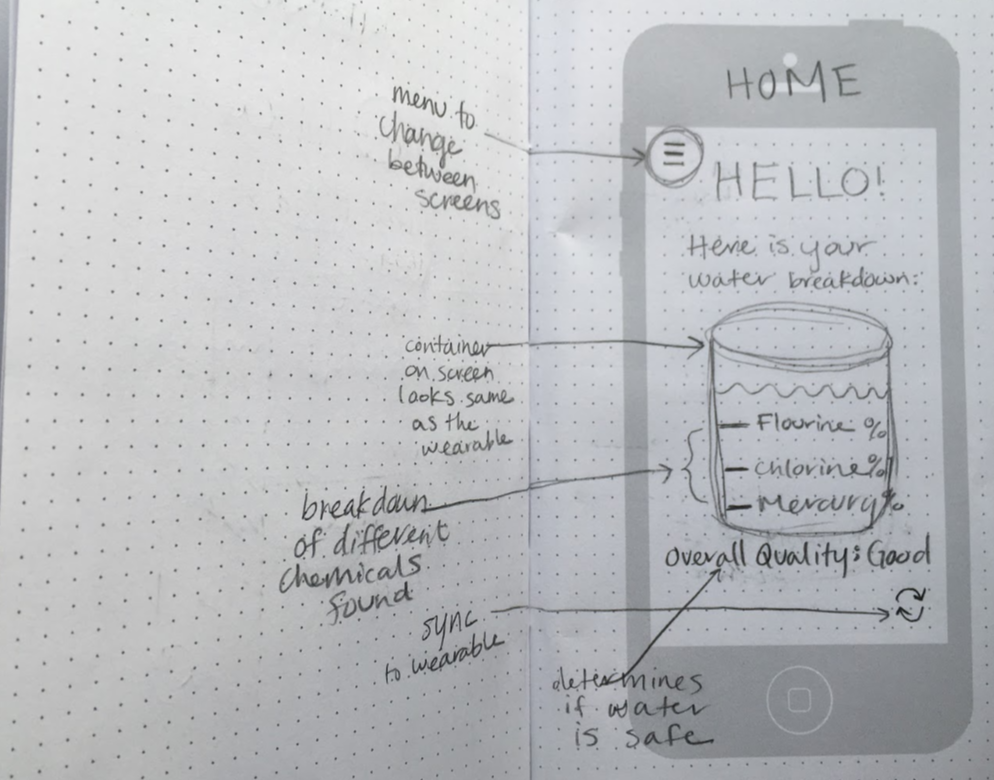 HOME
menu to
change
between
screens
HELLO!
Here is your
water breakdown:
container
on screen
looks same
as the
wearable
Flourine %
Chlorine %
Mercury %
breakdown
of different
chemicals
found
Overall Quality: Good
sync
to wearable
determines
if water
is safe